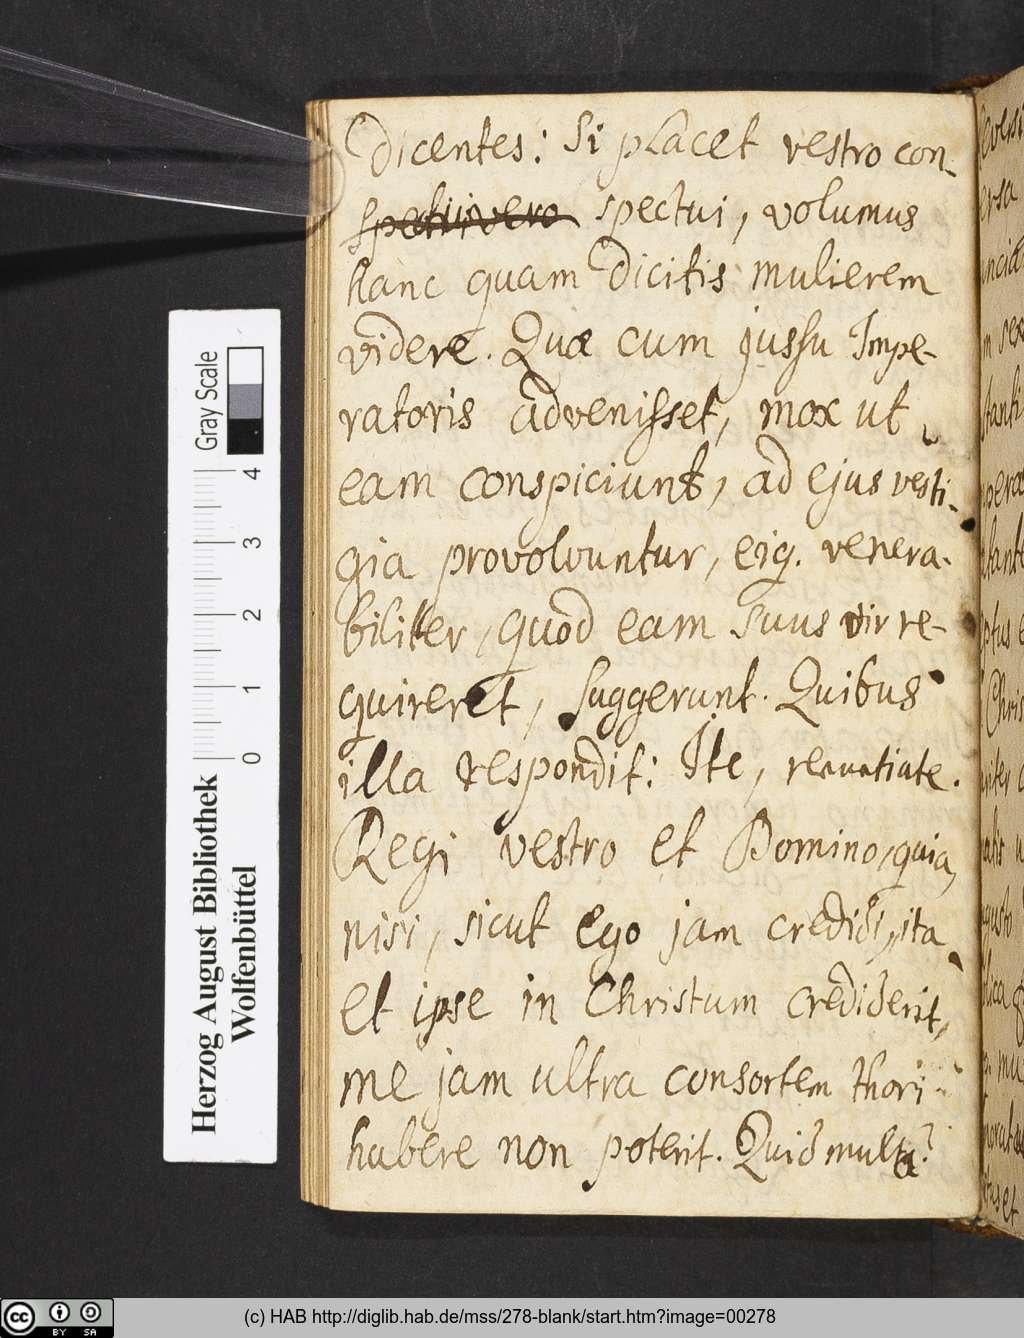 Dicentes: Si placet vestro con-
spectui, volumus
hanc quam dicitis mulierem
videre. Quæ cum jussu Impe-
ratoris advenisset, mox ut
eam conspiciunt, ad ejus vesti-
gia provolvuntur, eiq. venera-
biliter, quod eam suus vir re-
quireret, suggerunt. Quibus
illa respondit: Ite, renuntiate
Regi vestro et Domino, quia,
nisi, sicut Ego jam credidi, ita
et ipse in Christum crediderit,
me jam ultra consortem thori
habere non poterit. Quid multa?
Gray Scale
4 3 2 1 0
Herzog August Bibliothek
Wolfenbüttel
cc BY SA
(c) HAB http://diglib.hab.de/mss/278-blank/start.htm?image=00278